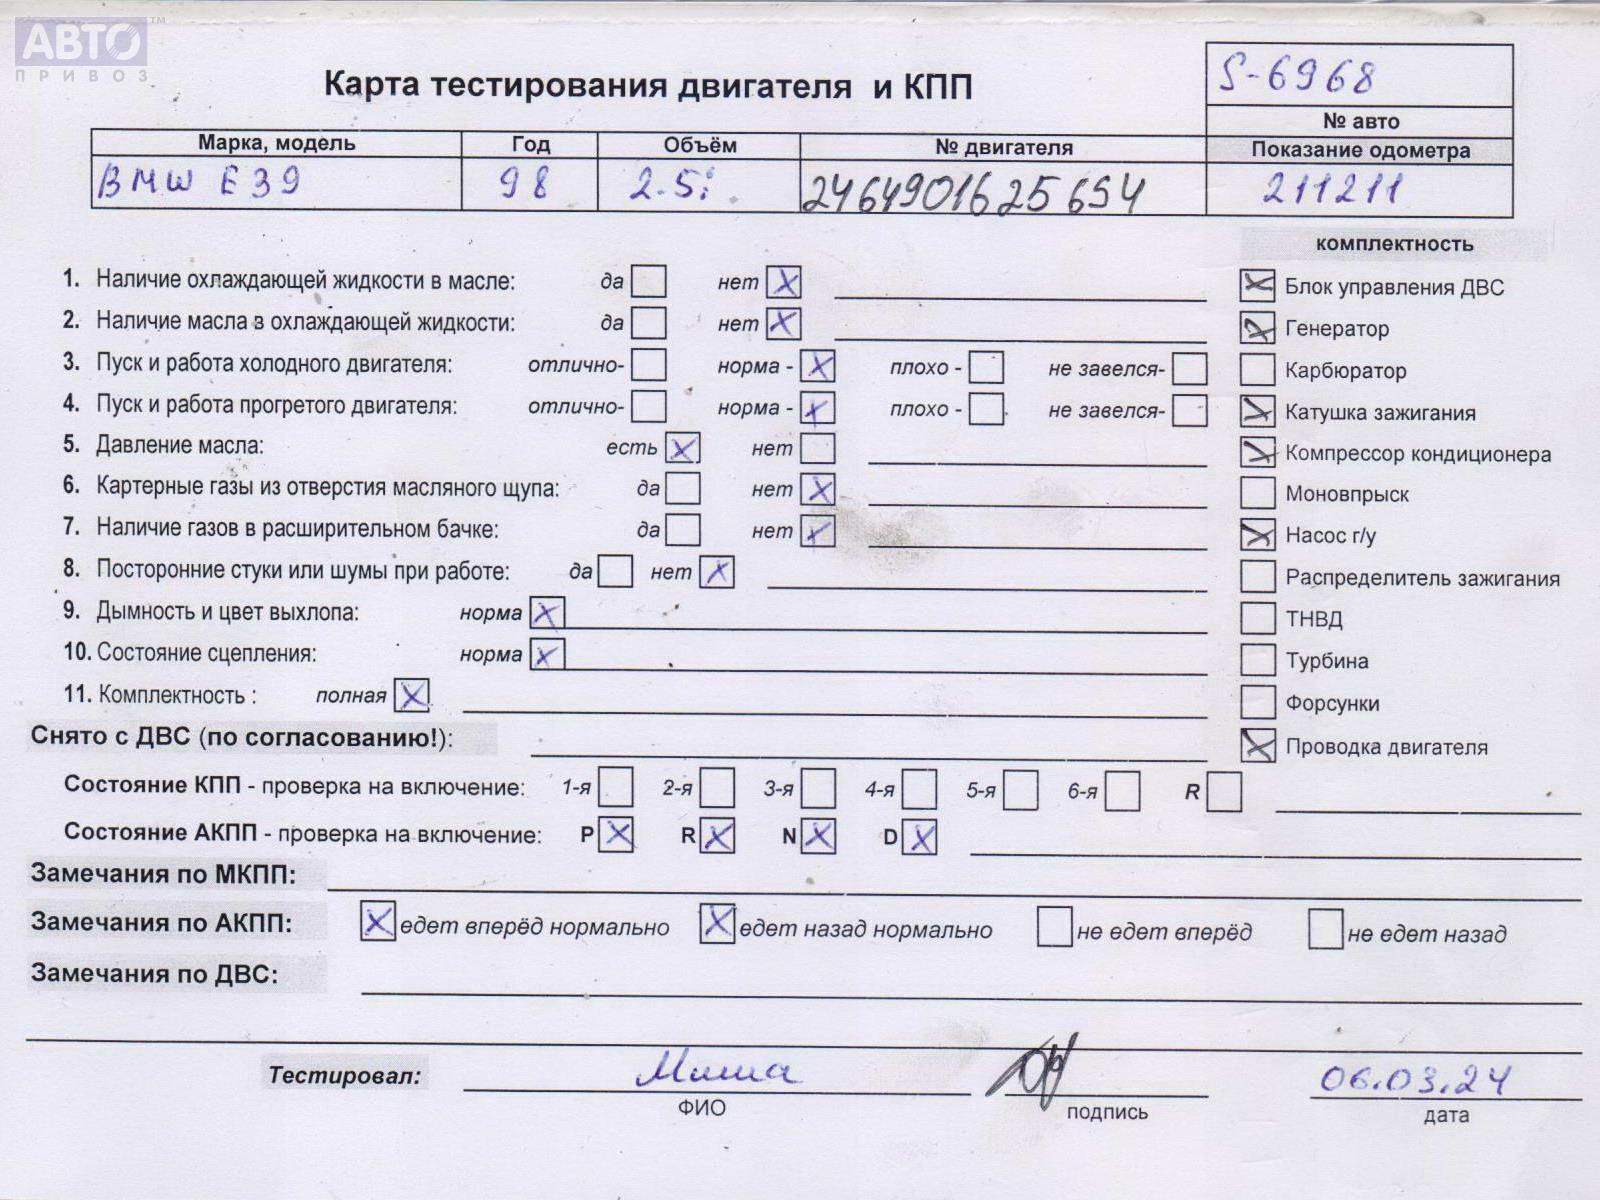 АВТО™
ПРИВОЗ
Карта тестирования двигателя и КПП
S-6968
№ авто
Марка, модель Год Объём № двигателя Показание одометра
BMW E39 98 2.5i 2464901625654 211211
комплектность
1. Наличие охлаждающей жидкости в масле: да нет X
2. Наличие масла в охлаждающей жидкости: да нет X
3. Пуск и работа холодного двигателя: отлично- норма - X плохо - не завелся-
4. Пуск и работа прогретого двигателя: отлично- норма - X плохо - не завелся-
5. Давление масла: есть X нет
6. Картерные газы из отверстия масляного щупа: да нет X
7. Наличие газов в расширительном бачке: да нет X
8. Посторонние стуки или шумы при работе: да нет X
9. Дымность и цвет выхлопа: норма X
10. Состояние сцепления: норма X
11. Комплектность : полная X
X Блок управления ДВС
X Генератор
Карбюратор
X Катушка зажигания
X Компрессор кондиционера
Моновпрыск
X Насос г/у
Распределитель зажигания
ТНВД
Турбина
Форсунки
X Проводка двигателя
Снято с ДВС (по согласованию!):
Состояние КПП - проверка на включение: 1-я 2-я 3-я 4-я 5-я 6-я R
Состояние АКПП - проверка на включение: P X R X N X D X
Замечания по МКПП:
Замечания по АКПП: X едет вперёд нормально X едет назад нормально не едет вперёд не едет назад
Замечания по ДВС:
Тестировал: Миша 06.03.24
ФИО подпись дата